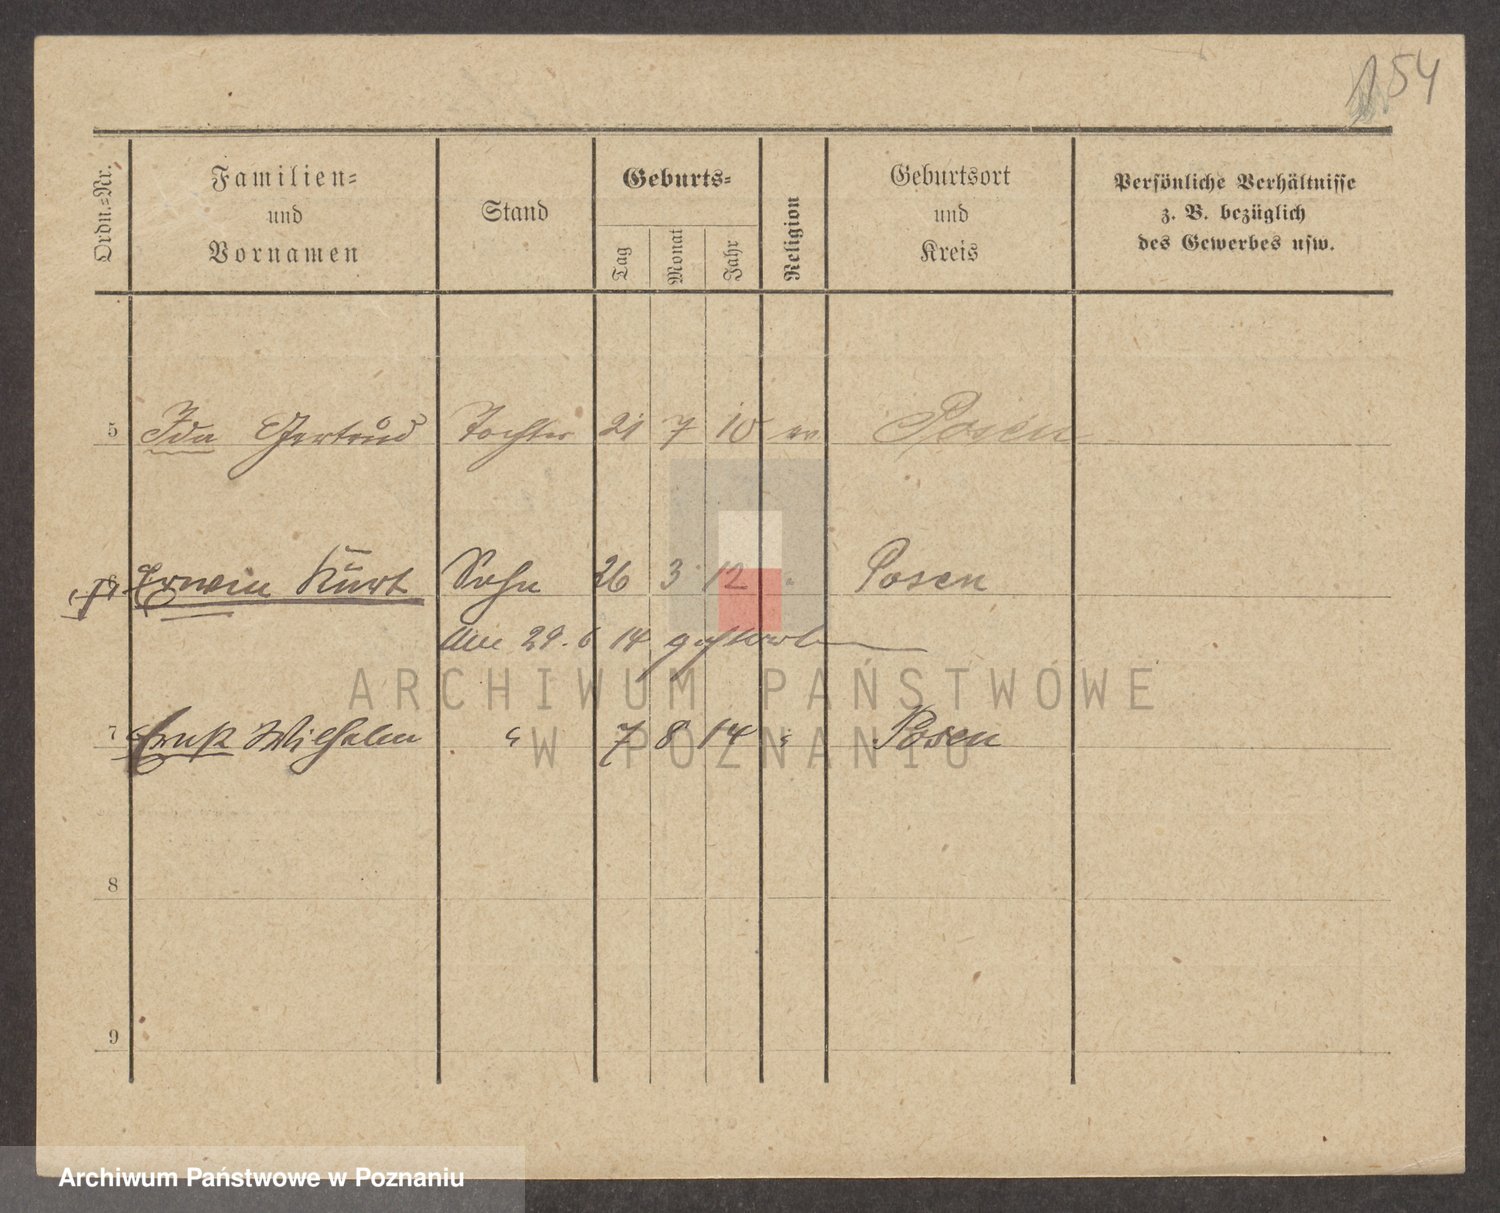 154
Ordn.=Nr.
Familien=
und
Vornamen
Stand
Geburts=
Tag
Monat
Jahr
Religion
Geburtsort
und
Kreis
Persönliche Verhältnisse
z. B. bezüglich
des Gewerbes usw.
5 Ida Gertrud Tochter 21 7 10 ev Posen
6 Erwin Kurt Sohn 26 3 12 " Posen
Am 29. 6 14 gestorben
7 Ernst Wilhelm " 7 8 14 " Posen
8
9
ARCHIWUM PAŃSTWOWE
W POZNANIU
Archiwum Państwowe w Poznaniu